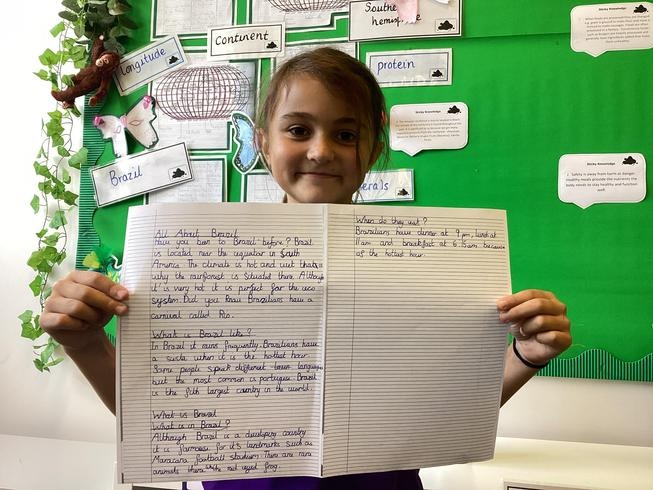 Longitude
Continent
Southern
hemisphere
protein
Brazil
erals
Sticky Knowledge
Sticky Knowledge
Sticky Knowledge
All About Brazil
Have you ben to Brazil before? Brazil
is located near the equator in South
America. The climate is hot and wet thats
why the rainforest is situated there. Although
it is very hot it is perfect for the eco
system. Did you know Brazilians have a
carnival called Rio.
What is Brazil like?
In Brazil it rains frequently. Brazilians have
a siesta when it is the hottest hour.
Some people speak different languages
but the most common is portugese. Brazil
is the fith largest country in the world.
What is Brazil
What is in Brazil?
Although Brazil is a developing country
it is farmouse for it's landmarks such as
Maracana football stadium. There are rare
animals there like the red eyed frog.
When do they eat?
Brazilians have dinner at 9pm, lunch at
11am and breakfast at 6:15am because
of the hottest hour.